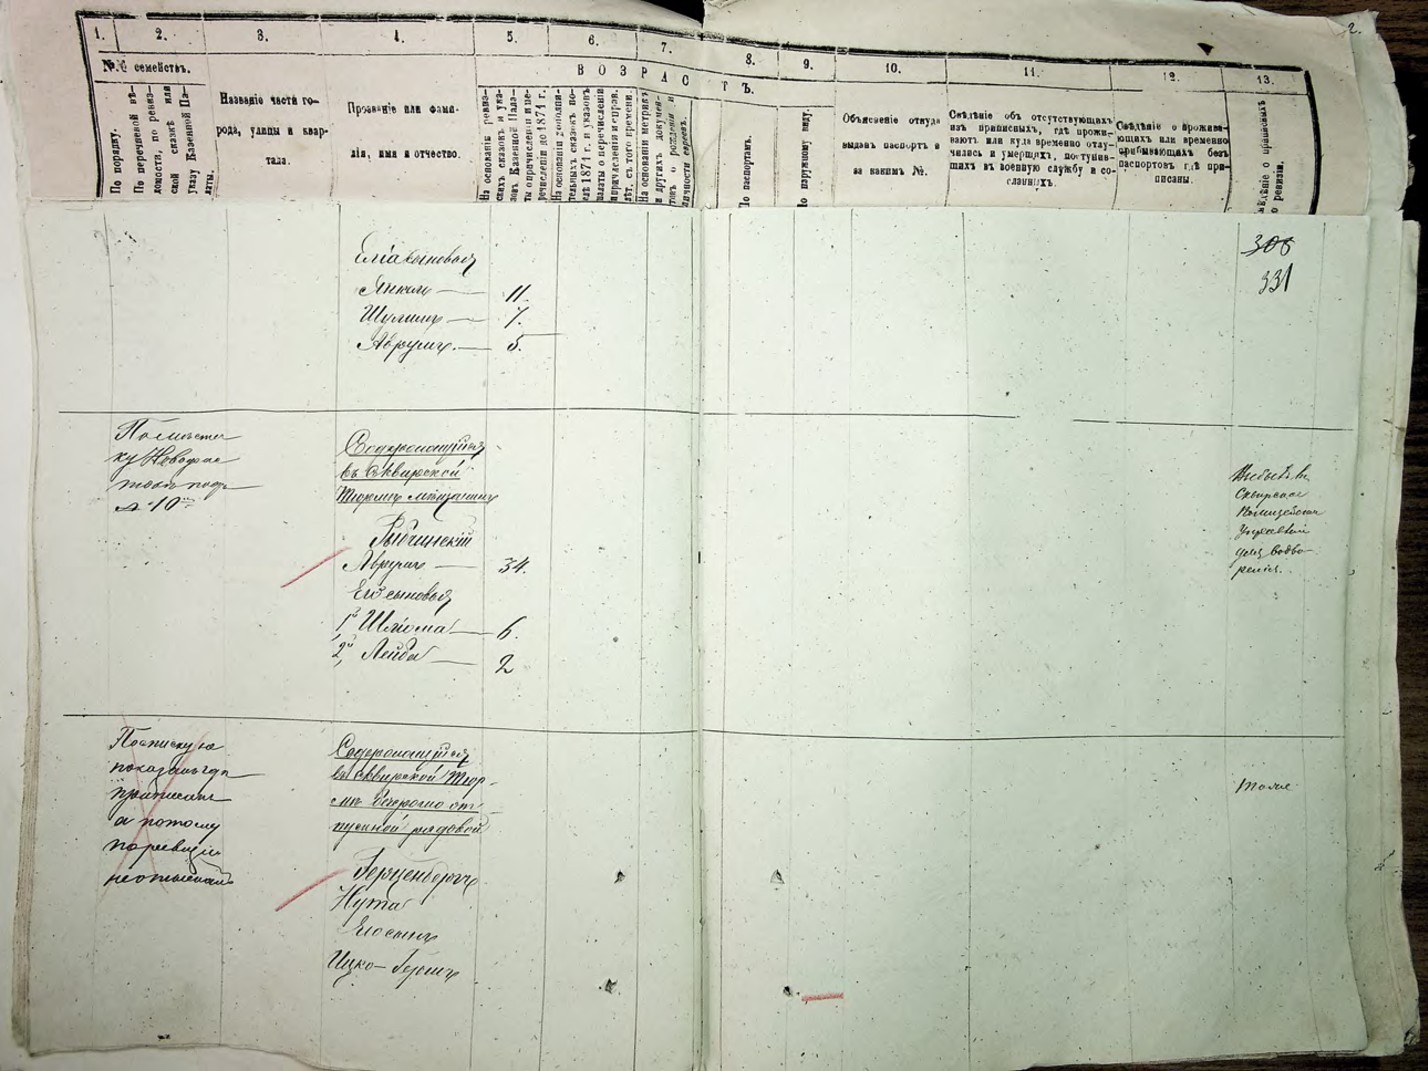 2.
1. 2. 3. 4. 5. 6. 7. 8. 9. 10. 11. 12. 13.
№№ семействъ.
В О З Р А С Т Ъ.
По порядку.
По перечневой вѣ-
домости, по ревиз-
ской сказкѣ или
указу Казенной Па-
латы.
Названіе части го-
рода, улицы и квар-
тала.
Прозваніе или фами-
лія, имя и отчество.
На основаніи ревиз-
скихъ сказокъ и ука-
зовъ Казенной Пала-
ты о причисленіи и пе-
речисленіи до 1871 г.
На основаніи дополни-
тельныхъ сказокъ по-
слѣ 1871 г. и указовъ
палаты о перечисленіи
и причисленіи еврея.
лѣт. съ того времени.
На основаніи метрикъ
и другихъ докумен-
товъ о рожденіи и
личности евреевъ.
По паспортамъ.
По наружному виду.
Объясненіе откуда
выданъ паспортъ и
за какимъ №.
Свѣдѣніе объ отсутствующихъ
изъ приписныхъ, гдѣ прожи-
ваютъ или куда временно отлу-
чились и умершихъ, поступив-
шихъ въ военную службу и со-
сланныхъ.
Свѣдѣніе о прожива-
ющихъ или временно
прибывающихъ безъ
паспортовъ гдѣ при-
писаны.
Свѣдѣніе о приписныхъ
по ревизіи.
Янкель 11.
Шулимъ 7.
Аврумъ. 5.
308
331
По мѣстеч
ку Новофас
товъ подъ
№ 10
Содержащійся
въ Сквирской
Тюрьмѣ мѣщанинъ
Рыбчинскій
Аврумъ 34.
Его сыновья
1й Шлiома 6.
2й Лейба 2
Выбылъ въ
Сквирское
Полицейское
Управленіе
для водво-
ренія.
По списку не
показанъ гдѣ
приписанъ
а потому
по ревизіи
не отысканъ
Содержащійся
въ Сквирской Тюр-
мѣ безсрочно от-
пускной рядовой
Герценбергъ
Нута
Его сынъ
Ицко-Гершъ
тоже